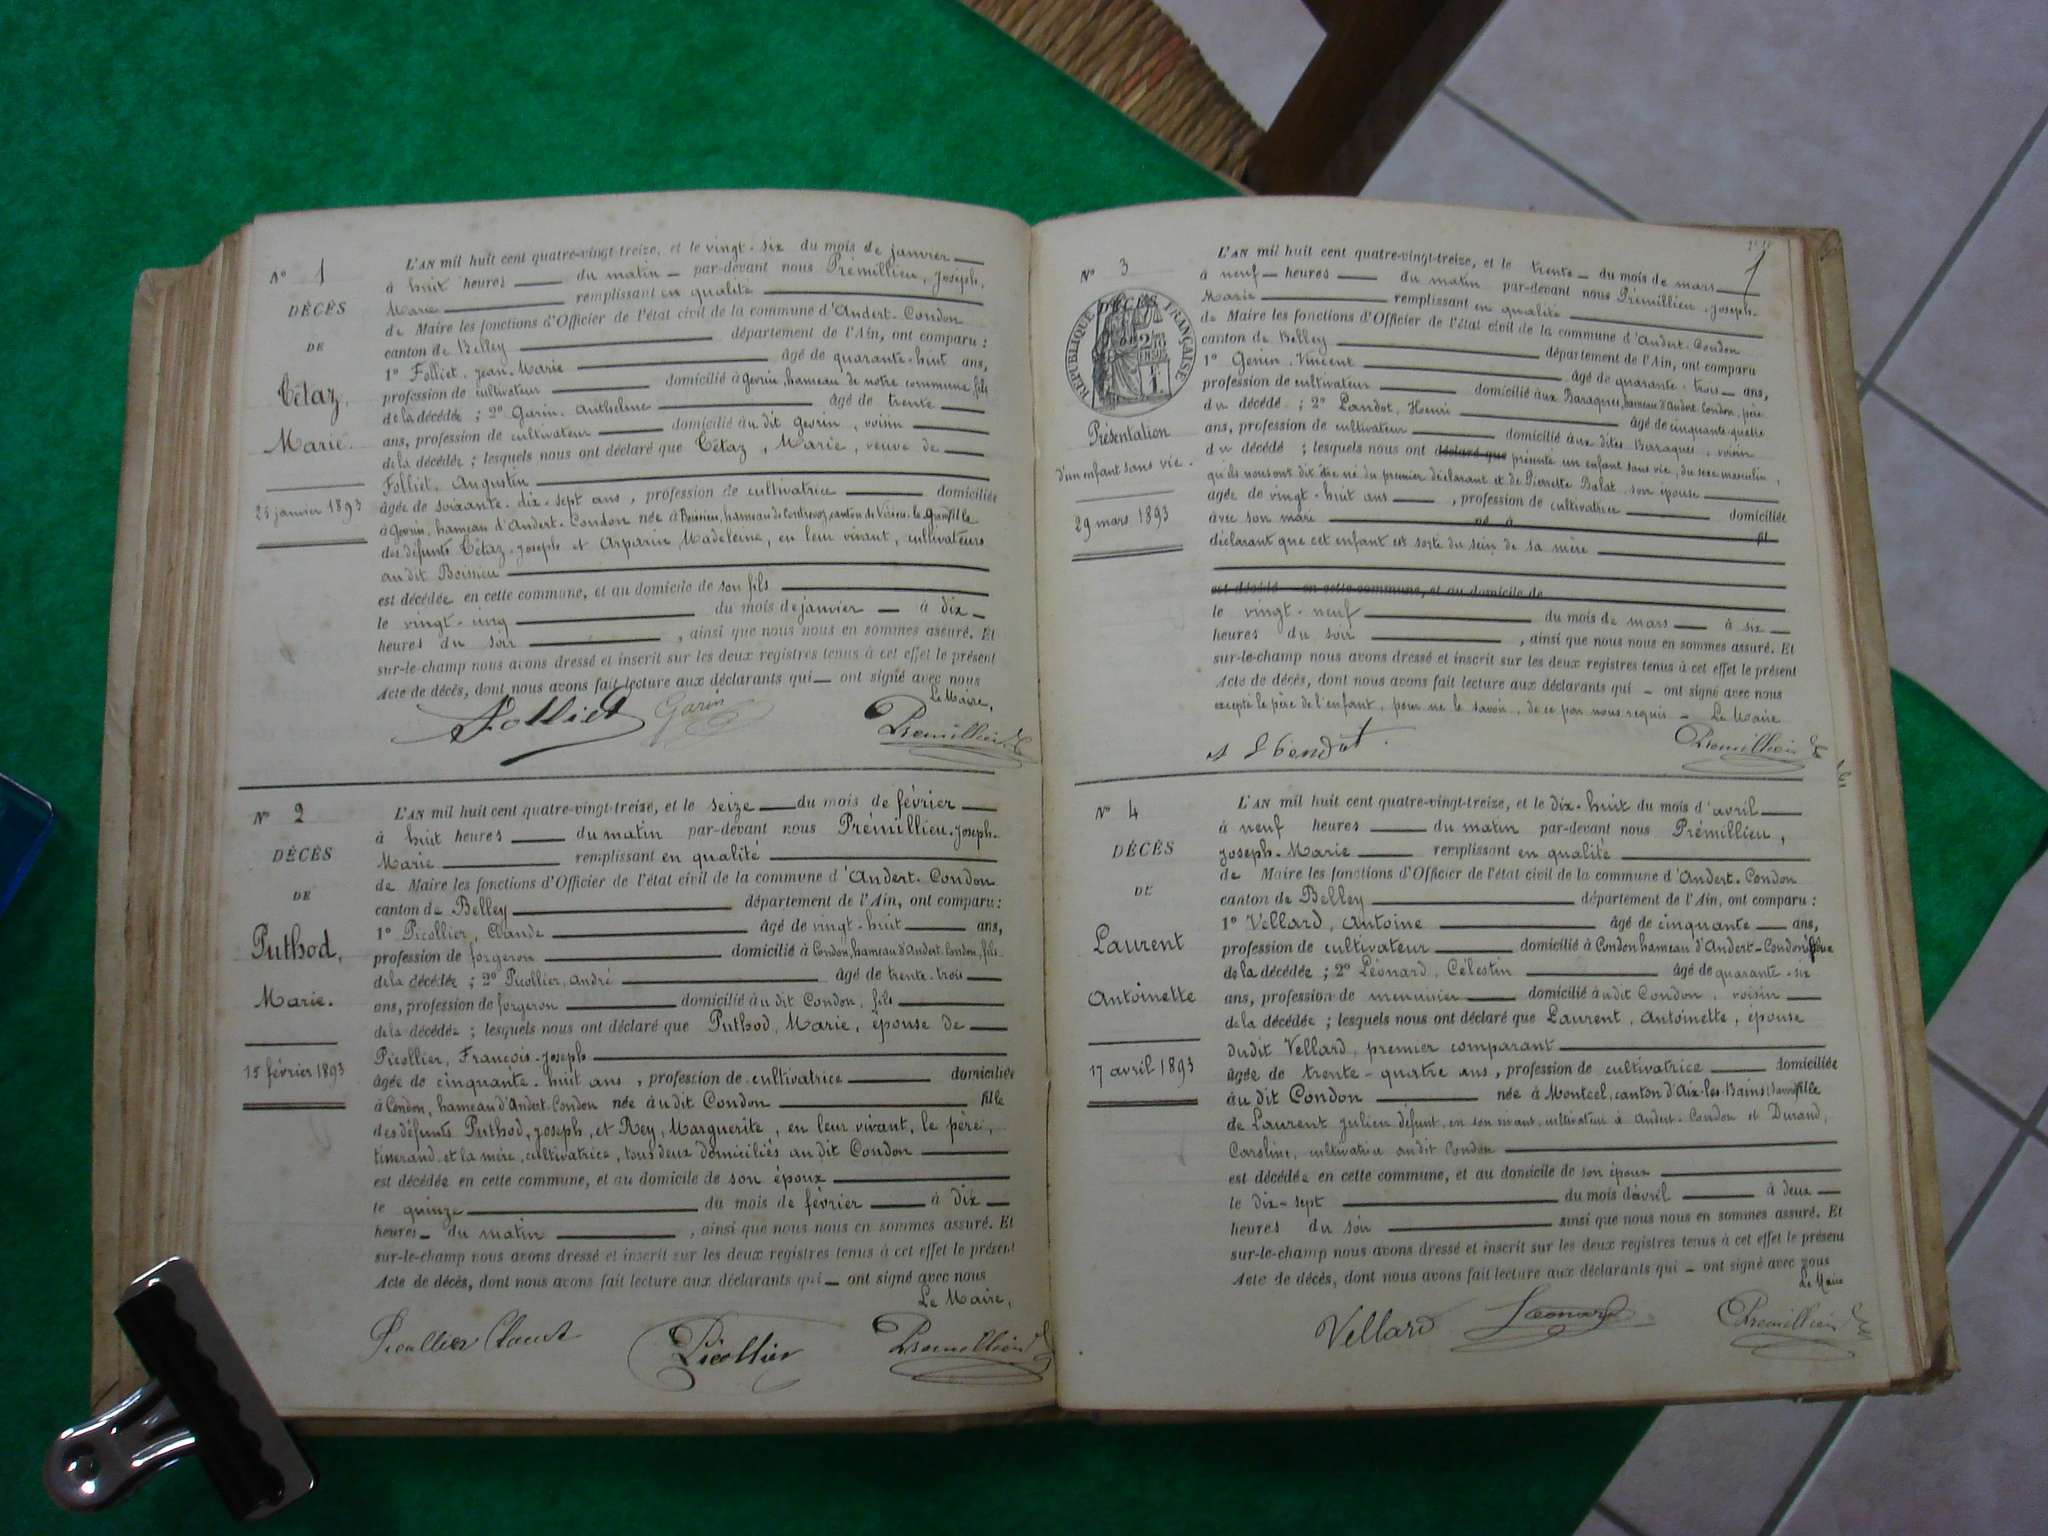 N° 1
DÉCÈS
DE
Tétaz,
Marie.
25 janvier 1893
L'AN mil huit cent quatre-vingt-treize, et le vingt-six du mois de janvier
à huit heures du matin par-devant nous Prémillieu, Joseph,
Marie remplissant en qualité
de Maire les fonctions d'Officier de l'état civil de la commune d'Andert-Condon
canton de Belley département de l'Ain, ont comparu :
1° Folliet, Jean-Marie âgé de quarante-huit ans,
profession de cultivateur domicilié à Gevrin, hameau de notre commune, fils
de la décédée ; 2° Garin, Anthelme âgé de trente
ans, profession de cultivateur domicilié au dit Gevrin, voisin
de la décédée ; lesquels nous ont déclaré que Tétaz, Marie, veuve de
Folliet, Augustin
âgée de soixante-dix-sept ans, profession de cultivatrice domiciliée
à Gevrin, hameau d'Andert-Condon née à Boissieu, hameau de Contrevoz, canton de Virieu-le-Grand fille
des défunts Tétaz, Joseph et Arparin, Madeleine, en leur vivant, cultivateurs
au dit Boissieu
est décédée en cette commune, et au domicile de son fils
le vingt-cinq du mois de janvier à dix
heures du soir, ainsi que nous nous en sommes assuré. Et
sur-le-champ nous avons dressé et inscrit sur les deux registres tenus à cet effet le présent
Acte de décès, dont nous avons fait lecture aux déclarants qui ont signé avec nous
Le Maire,
Folliet Garin Prémillieu
N° 2
DÉCÈS
DE
Puthod,
Marie.
15 février 1893
L'AN mil huit cent quatre-vingt-treize, et le seize du mois de février
à huit heures du matin par-devant nous Prémillieu, Joseph-
Marie remplissant en qualité
de Maire les fonctions d'Officier de l'état civil de la commune d'Andert-Condon
canton de Belley département de l'Ain, ont comparu :
1° Picollier, Claude âgé de vingt-huit ans,
profession de forgeron domicilié à Condon, hameau d'Andert-Condon, fils
de la décédée ; 2° Picollier, André âgé de trente-trois
ans, profession de forgeron domicilié au dit Condon, fils
de la décédée ; lesquels nous ont déclaré que Puthod, Marie, épouse de
Picollier, François-Joseph
âgée de cinquante-huit ans, profession de cultivatrice domiciliée
à Condon, hameau d'Andert-Condon née au dit Condon fille
des défunts Puthod, Joseph, et Rey, Marguerite, en leur vivant, le père,
tisserand et la mère, cultivatrice, tous deux domiciliés au dit Condon
est décédée en cette commune, et au domicile de son époux
le quinze du mois de février à dix
heures du matin, ainsi que nous nous en sommes assuré. Et
sur-le-champ nous avons dressé et inscrit sur les deux registres tenus à cet effet le présent
Acte de décès, dont nous avons fait lecture aux déclarants qui ont signé avec nous
Le Maire,
Picollier Claude Picollier Prémillieu
N° 3
DÉCÈS
RÉPUBLIQUE FRANÇAISE
Présentation
d'un enfant sans vie.
29 mars 1893
L'AN mil huit cent quatre-vingt-treize, et le trente du mois de mars
à neuf heures du matin par-devant nous Prémillieu, Joseph-
Marie remplissant en qualité
de Maire les fonctions d'Officier de l'état civil de la commune d'Andert-Condon
canton de Belley département de l'Ain, ont comparu
1° Genin, Vincent âgé de quarante-trois ans,
profession de cultivateur domicilié aux Baraques, hameau d'Andert-Condon, père
du décédé ; 2° Landot, Henri âgé de cinquante-quatre
ans, profession de cultivateur domicilié aux dites Baraques, voisin
du décédé ; lesquels nous ont déclaré que présenté un enfant sans vie, du sexe masculin,
qu'ils nous ont dit être né du premier déclarant et de Pierrette Balat, son épouse
âgée de vingt-huit ans, profession de cultivatrice domiciliée
avec son mari né à fil
déclarant que cet enfant est sorti du sein de sa mère
est décédé en cette commune, et au domicile de
le vingt-neuf du mois de mars à six
heures du soir, ainsi que nous nous en sommes assuré. Et
sur-le-champ nous avons dressé et inscrit sur les deux registres tenus à cet effet le présent
Acte de décès, dont nous avons fait lecture aux déclarants qui ont signé avec nous
excepté le père de l'enfant, pour ne le savoir, de ce par nous requis Le Maire
Prémillieu
N° 4
DÉCÈS
DE
Laurent
Antoinette
17 avril 1893
L'AN mil huit cent quatre-vingt-treize, et le dix-huit du mois d'avril
à neuf heures du matin par-devant nous Prémillieu,
Joseph-Marie remplissant en qualité
de Maire les fonctions d'Officier de l'état civil de la commune d'Andert-Condon
canton de Belley département de l'Ain, ont comparu :
1° Vellard, Antoine âgé de cinquante ans,
profession de cultivateur domicilié à Condon hameau d'Andert-Condon
de la décédée ; 2° Léonard, Célestin âgé de quarante-six
ans, profession de menuisier domicilié au dit Condon, voisin
de la décédée ; lesquels nous ont déclaré que Laurent, Antoinette, épouse
du dit Vellard, premier comparant
âgée de trente-quatre ans, profession de cultivatrice domiciliée
au dit Condon née à Montcel, canton d'Aix-les-Bains (Savoie) fille
de Laurent Julien défunt, en son vivant, cultivateur à Andert-Condon et Durand,
Caroline, cultivatrice au dit Condon
est décédée en cette commune, et au domicile de son époux
le dix-sept du mois d'avril à deux
heures du soir ainsi que nous nous en sommes assuré. Et
sur-le-champ nous avons dressé et inscrit sur les deux registres tenus à cet effet le présent
Acte de décès, dont nous avons fait lecture aux déclarants qui ont signé avec nous
Le Maire
Vellard Léonard Prémillieu